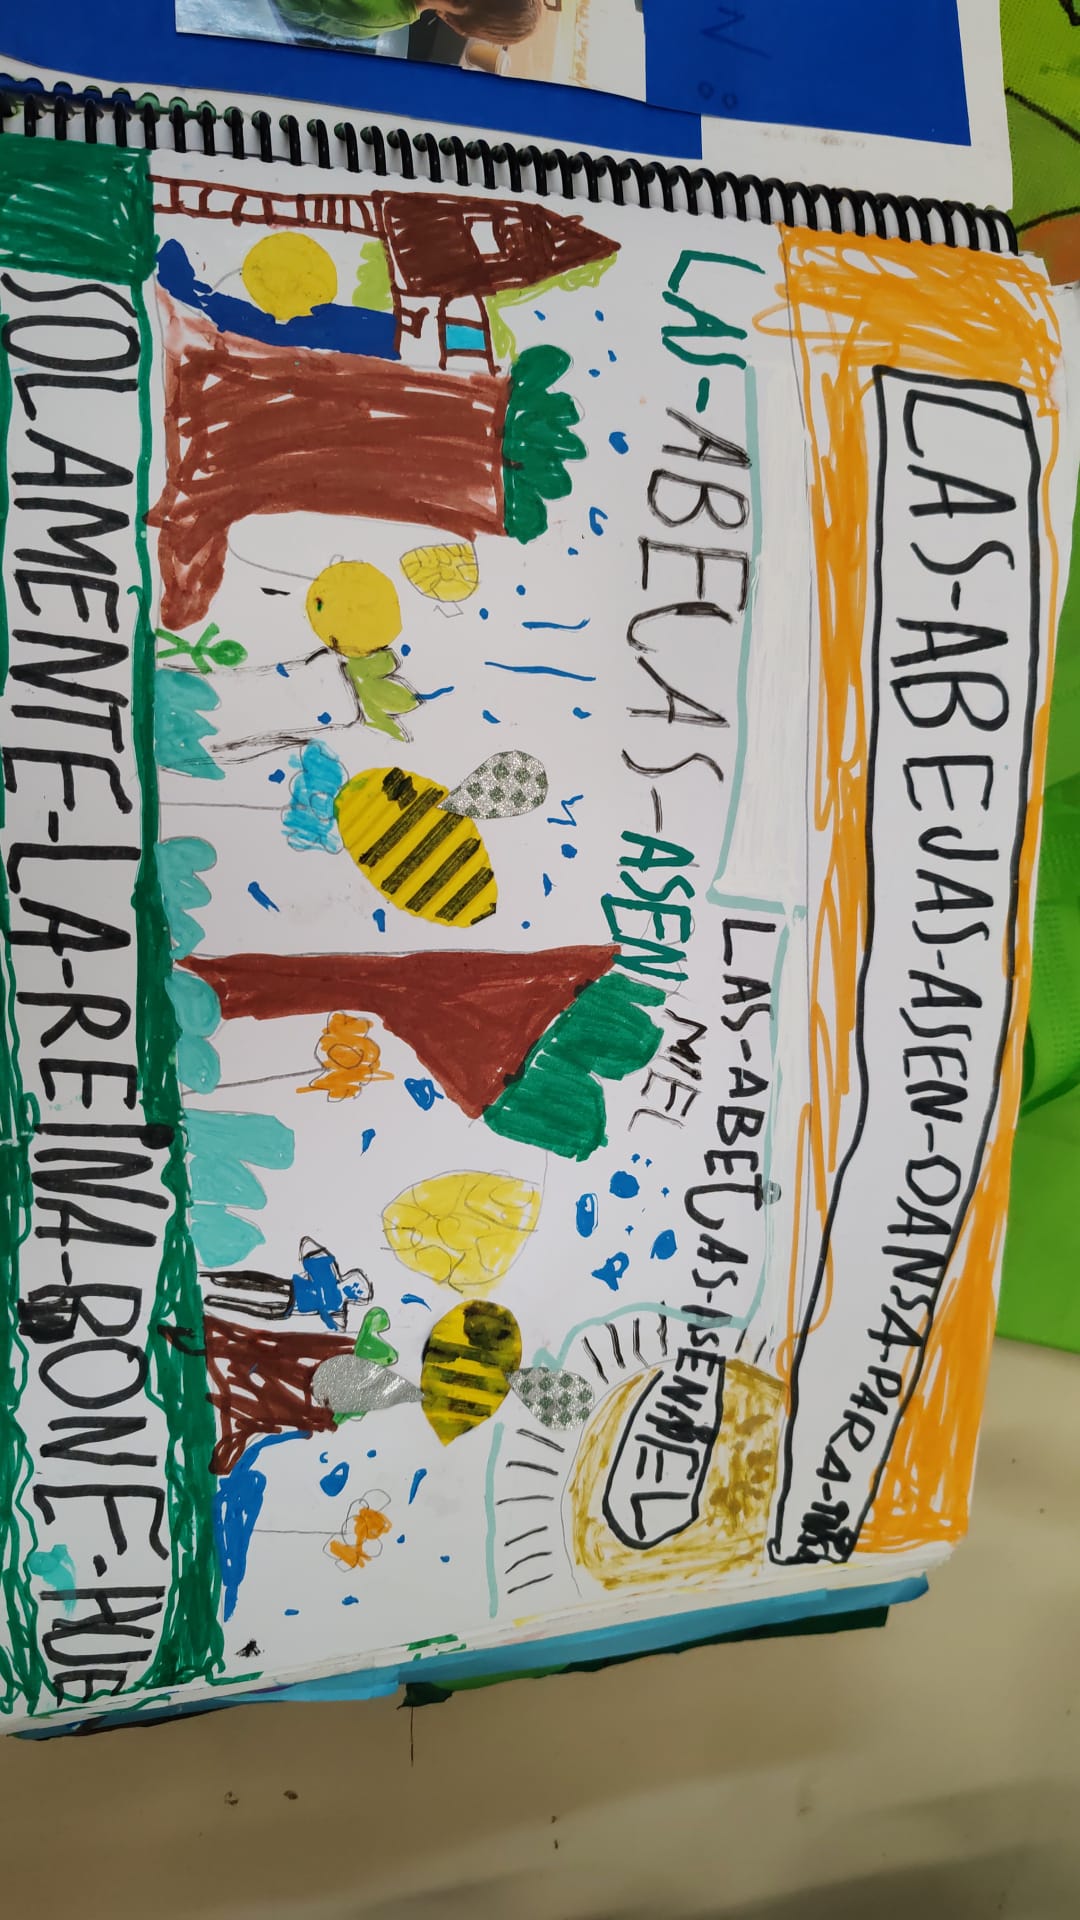 LAS-ABEJAS-ASEN-DANSA-PARA-
LAS-ABEJAS-ASEN
MEL
LAS-ABEJAS-ISEN
MIEL
SOLAMENTE-LA-REINA-BONE-HUE